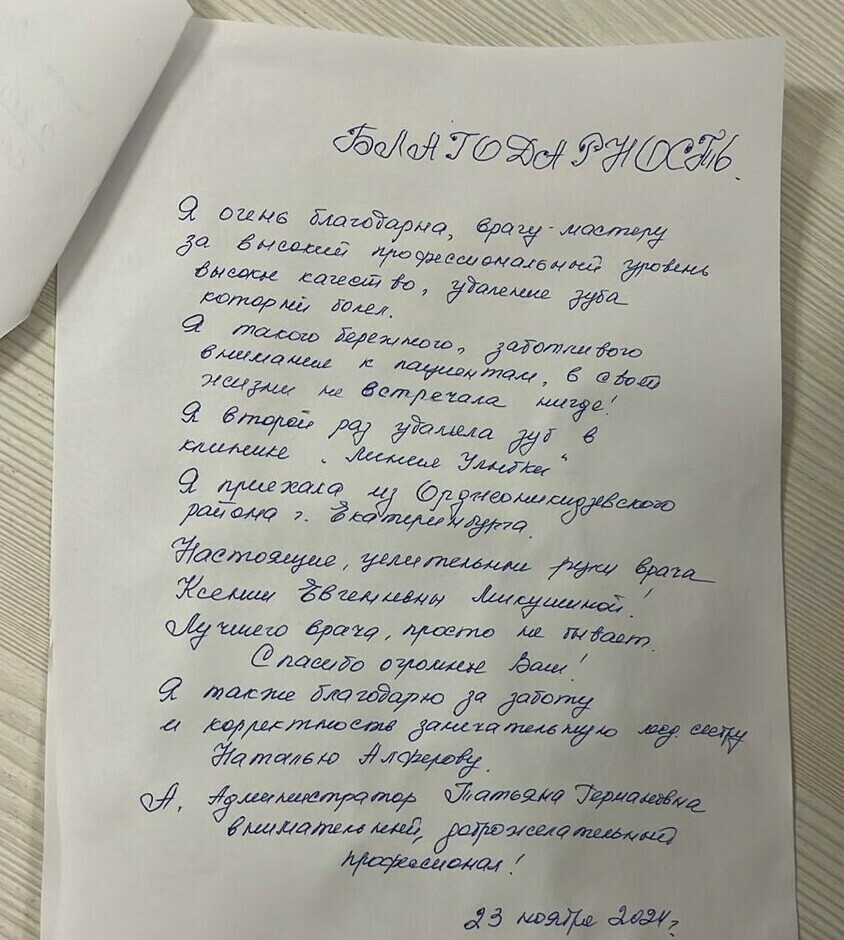 БЛАГОДАРНОСТЬ.
Я очень благодарна, врачу-мастеру
за высокий профессиональный уровень
высокое качество, удаление зуба
который болел.
Я такого бережного, заботливого
внимания к пациентам, в своей
жизни не встречала нигде!
Я второй раз удаляла зуб в
клинике „Линия Улыбки“
Я приехала из Орджоникидзевского
района г. Екатеринбурга.
Настоящие, целительные руки врача
Ксении Евгеньевны Микушиной!
Лучшего врача, просто не бывает.
Спасибо огромное Вам!
Я также благодарю за заботу
и корректность замечательную мед. сестру
Наталью Алферову.
А, Администратор Татьяна Германовна
внимательный, доброжелательный
профессионал!
23 ноября 2024г.